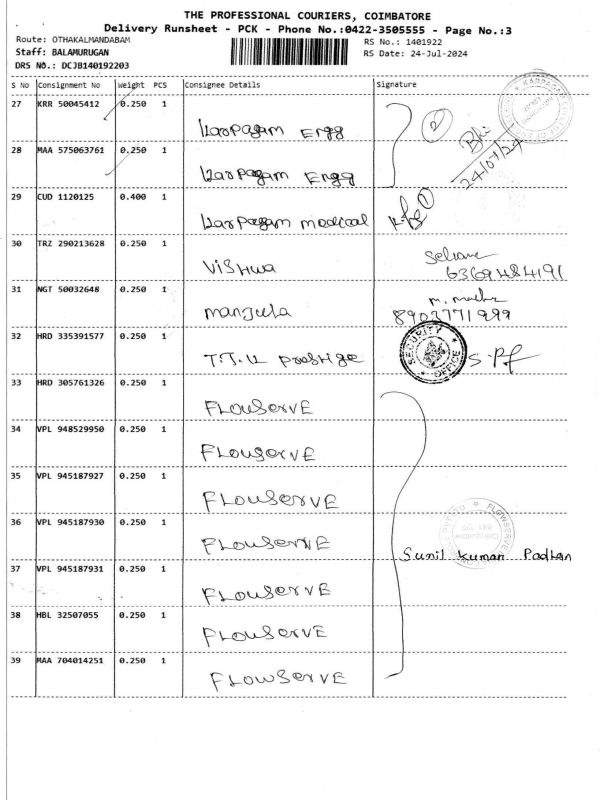 THE PROFESSIONAL COURIERS, COIMBATORE
Delivery Runsheet - PCK - Phone No.:0422-3505555 - Page No.:3
Route: OTHAKALMANDABAM
RS No.: 1401922
Staff: BALAMURUGAN
RS Date: 24-Jul-2024
DRS NO.: DCJB140192203
S No Consignment No Weight PCS Consignee Details Signature
27 KRR 50045412 0.250 1
Karpagam Engg
2
24/07/24
28 MAA 575063761 0.250 1
Karpagam Engg
29 CUD 1120125 0.400 1
Karpagam medical
1
30 TRZ 290213628 0.250 1
Vishwa
6369484191
31 NGT 50032648 0.250 1
Manjula
8903771999
32 HRD 335391577 0.250 1
T.T.K prestige
SECURITY OFFICE
33 HRD 305761326 0.250 1
FLOWSERVE
34 VPL 948529950 0.250 1
FLOWSERVE
35 VPL 945187927 0.250 1
FLOWSERVE
36 VPL 945187930 0.250 1
FLOWSERVE
Sunil Kumar Padhan
37 VPL 945187931 0.250 1
FLOWSERVE
38 HBL 32507055 0.250 1
FLOWSERVE
39 MAA 704014251 0.250 1
FLOWSERVE